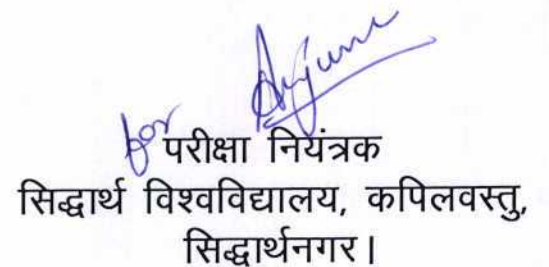 for
परीक्षा नियंत्रक
सिद्धार्थ विश्वविद्यालय, कपिलवस्तु,
सिद्धार्थनगर।